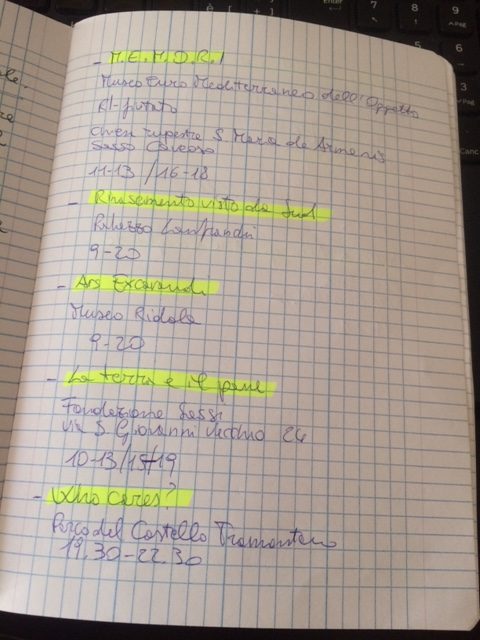 - M.E.M.O.R.I
Museo Euro Mediterraneo dell'Oggetto
RI-fiutato
Chiesa rupestre S. Maria de Armenis
Sasso Caveoso
11-13 / 16-18
- Rinascimento visto da Sud
Palazzo Lanfranchi
9-20
- Ars Excavandi
Museo Ridola
9-20
- La terra e il pane
Fondazione Sassi
via S. Giovanni Vecchio 24
10-13/15-19
- Who cares?
Parco del Castello Tramontano
19.30-22.30
7
8
9
4
5
6